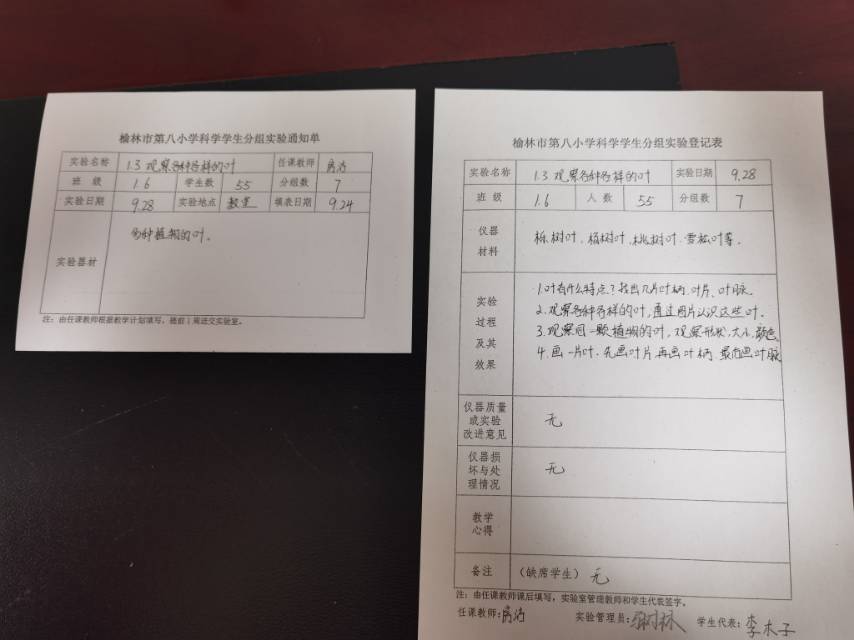 榆林市第八小学科学学生分组实验通知单
实验名称 1.3 观察各种各样的叶 任课教师
班 级 1.6 学生数 55 分组数 7
实验日期 9.28 实验地点 教室 填表日期 9.24
实验器材 各种植物的叶。
注：由任课教师根据教学计划填写，提前1周送交实验室。
榆林市第八小学科学学生分组实验登记表
实验名称 1.3 观察各种各样的叶 实验日期 9.28
班 级 1.6 人 数 55 分组数 7
仪器
材料
栎树叶、杨树叶、桃树叶、雪松叶等。
实验
过程
及其
效果
1.叶有什么特点？找出几片叶柄、叶片、叶脉。
2.观察各种各样的叶，通过图片认识这些叶。
3.观察同一颗植物的叶，观察形状、大小、颜色
4.画一片叶。先画叶片，再画叶柄，最后画叶脉
仪器质量
或实验
改进意见
无
仪器损
坏与处
理情况
无
教学
心得
备注 （缺席学生）无
注：由任课教师课后填写，实验室管理教师和学生代表签字。
任课教师： 实验管理员： 学生代表：李木子